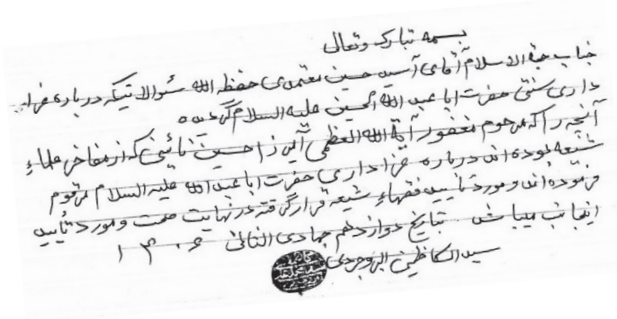 بسمه تبارک وتعالی
جناب حجة الاسلام آقای آسید حسین معتمدی حفظه الله سئوالاتیکه درباره عزا
داری سنتی حضرت ابا عبد الله الحسین علیه السلام گردیده
آنچه را که مرحوم مغفور آیة الله العظمی آمیرزا حسین نائینی که از مفاخر علماء
شیعه بوده اند درباره عزاداری حضرت ابا عبد الله علیه السلام مرقوم
فرموده اند و مورد تأیید فقهاء شیعه قرار گرفته در نهایت صحت و مورد تأیید
اینجانب میباشد بتاریخ دوازدهم جمادی الثانی ۱۴۰۶
سید الکاظمینی البروجردی